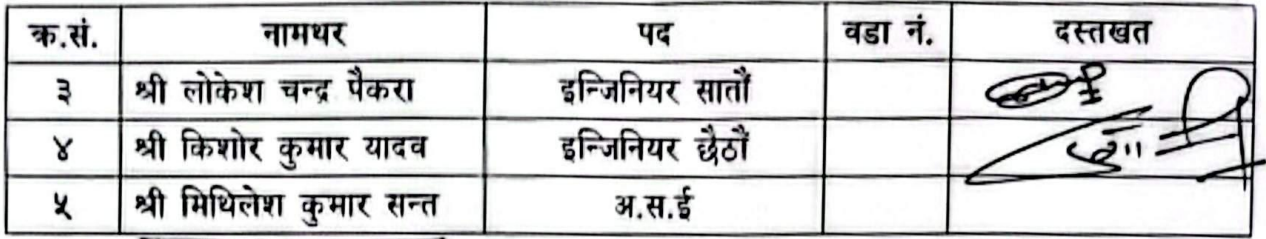 क्र.सं. नामथर पद वडा नं. दस्तखत
३ श्री लोकेश चन्द्र पैकरा इन्जिनियर सातौं
४ श्री किशोर कुमार यादव इन्जिनियर छैठौं
५ श्री मिथिलेश कुमार सन्त अ.स.ई